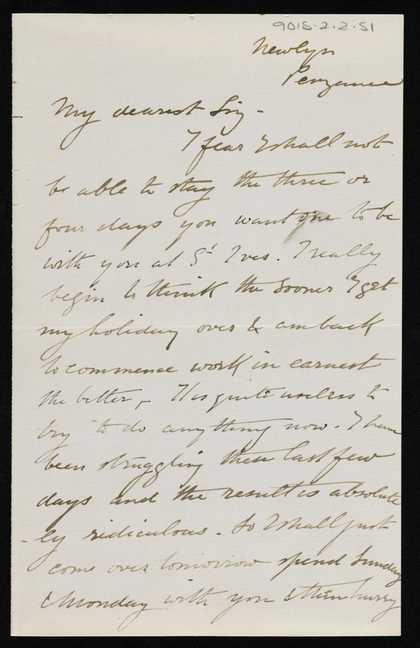 9015-2-2-51
Newlyn
Penzance
My dearest Liz -
I fear I shall not
be able to stay the three or
four days you want me to be
with you at St Ives. I really
begin to think the sooner I get
my holiday over & am back
to commence work in earnest
the better, - It is quite useless to
try to do anything now. I have
been struggling these last few
days and the result is absolute
-ly ridiculous. So I shall just
come over tomorrow spend Sunday
& Monday with you & then hurry